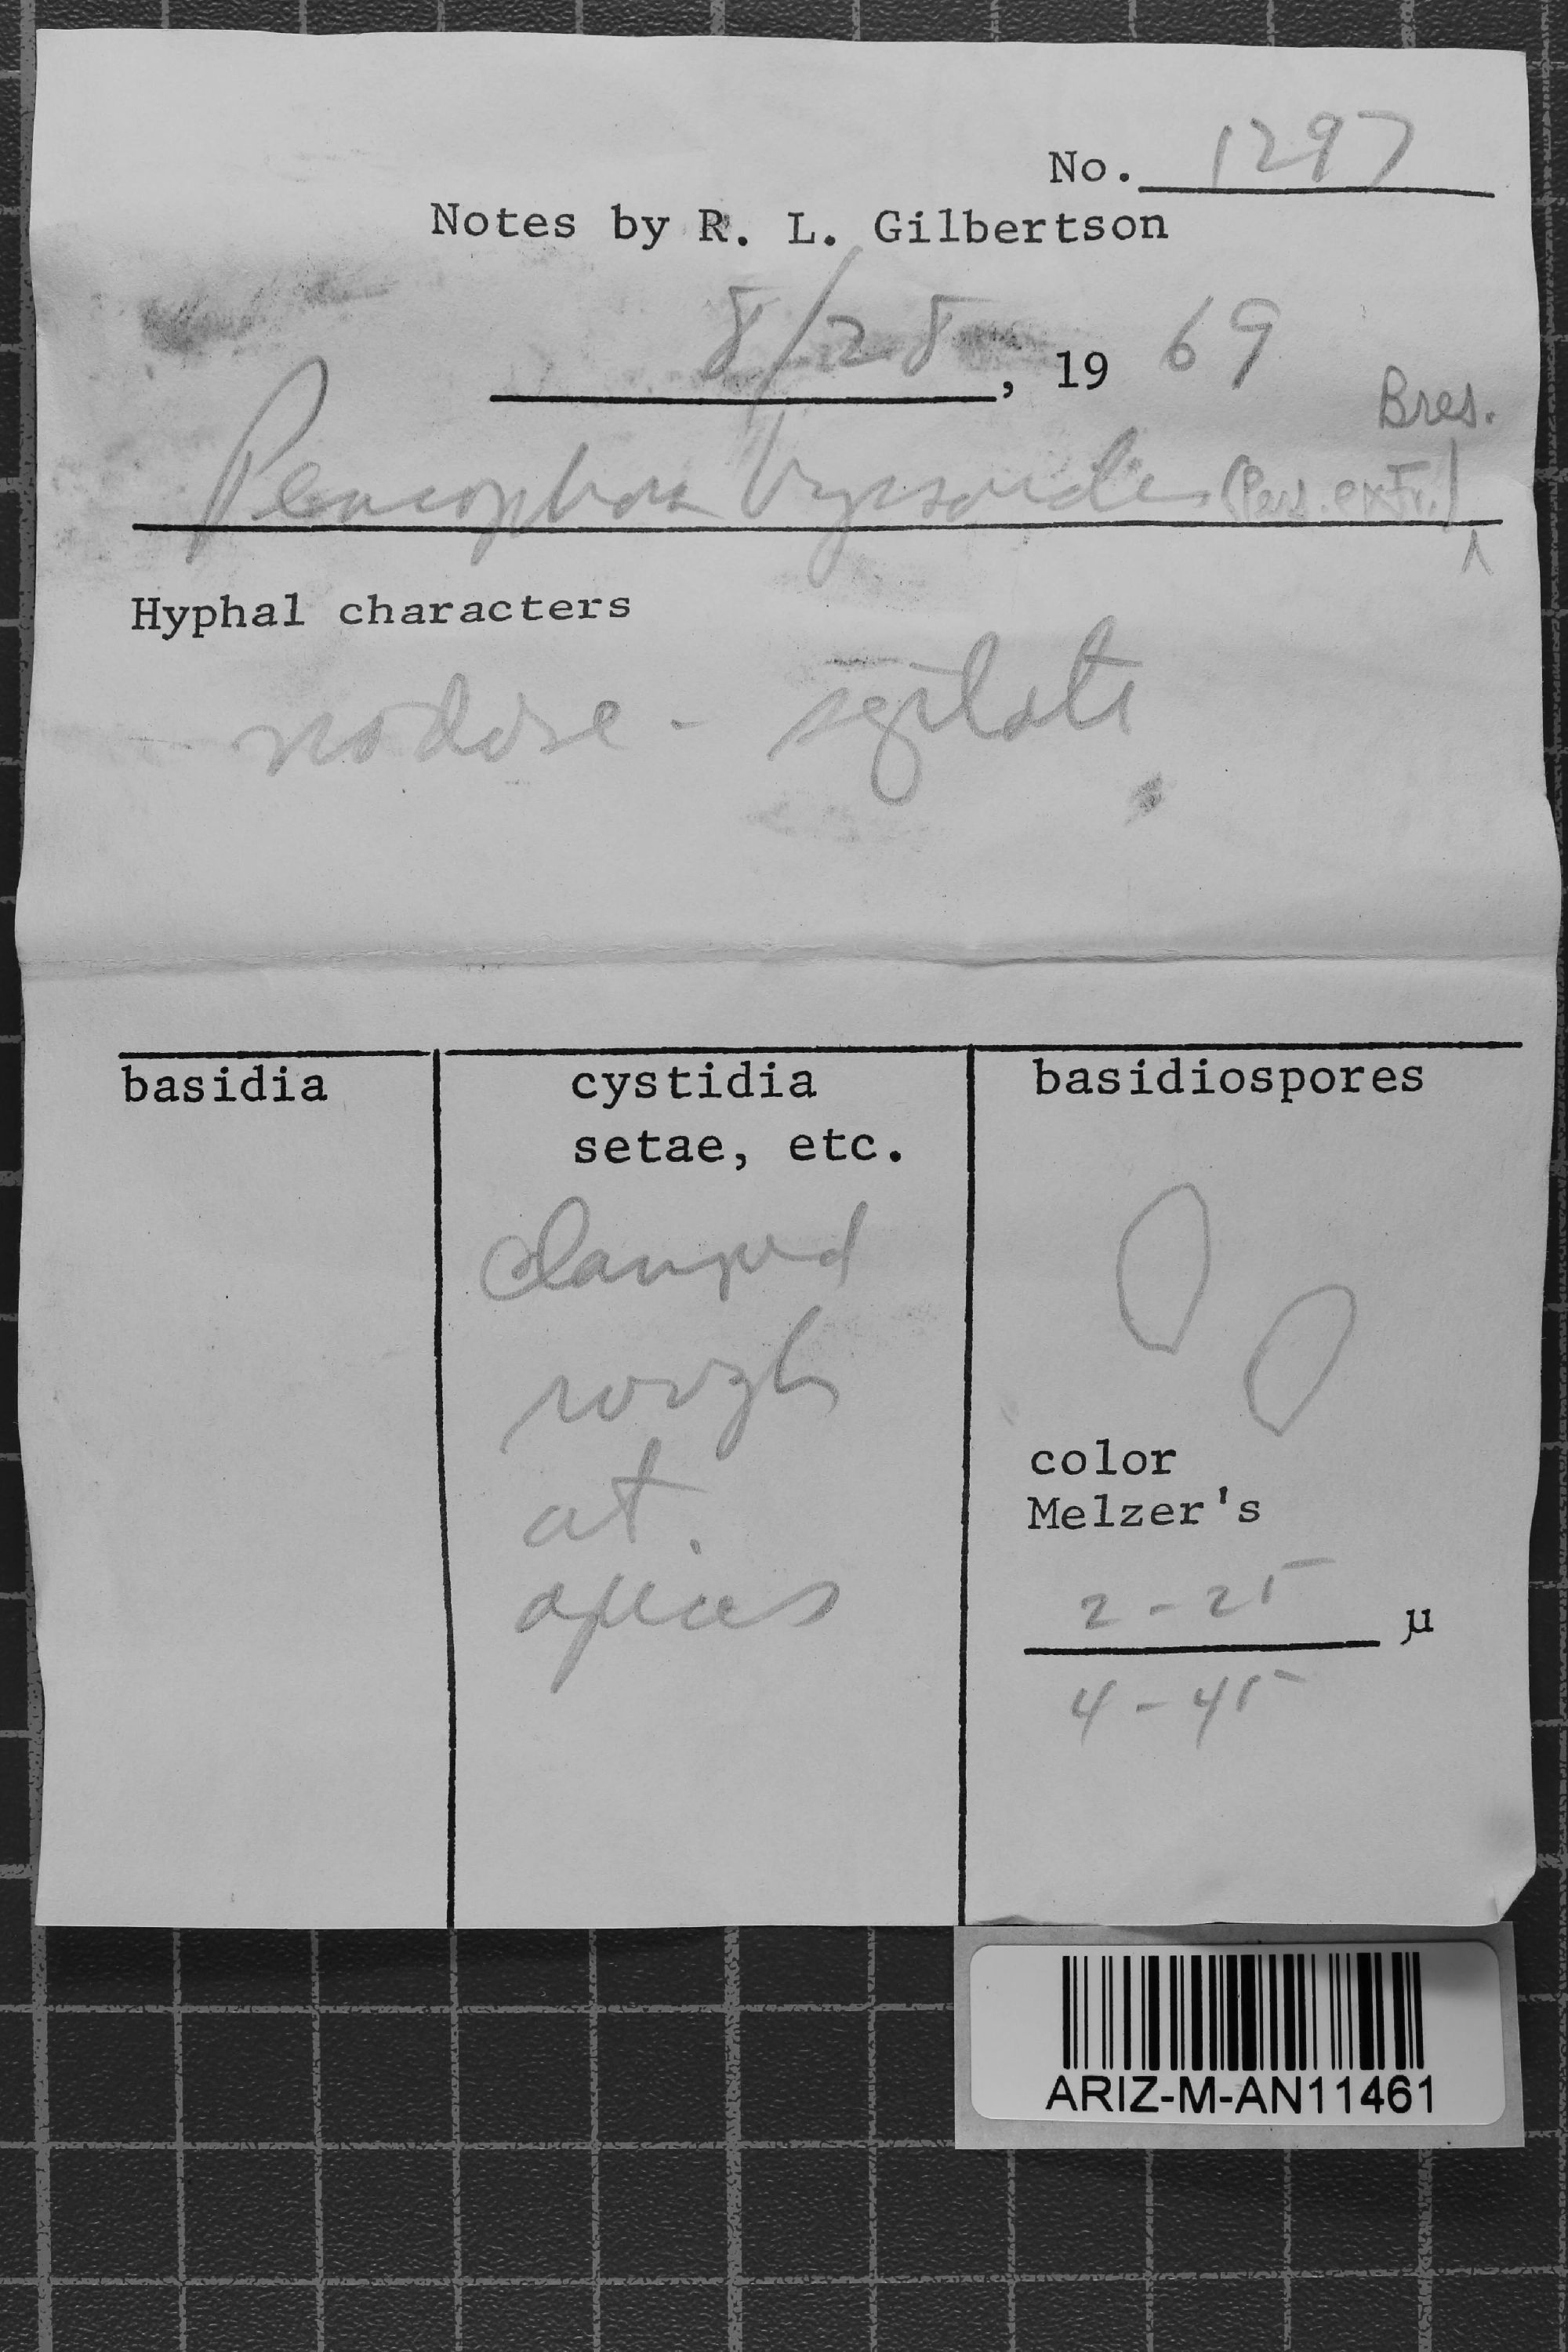 No. 1297
Notes by R. L. Gilbertson
8/28, 19 69
Peniophora byssoides (Pers. ex Fr.) Bres.
Hyphal characters
nodose - septate
basidia
cystidia
setae, etc.
clamped
rough
at
apices
basidiospores
color
Melzer's
2 - 25 µ
4 - 45
ARIZ-M-AN11461